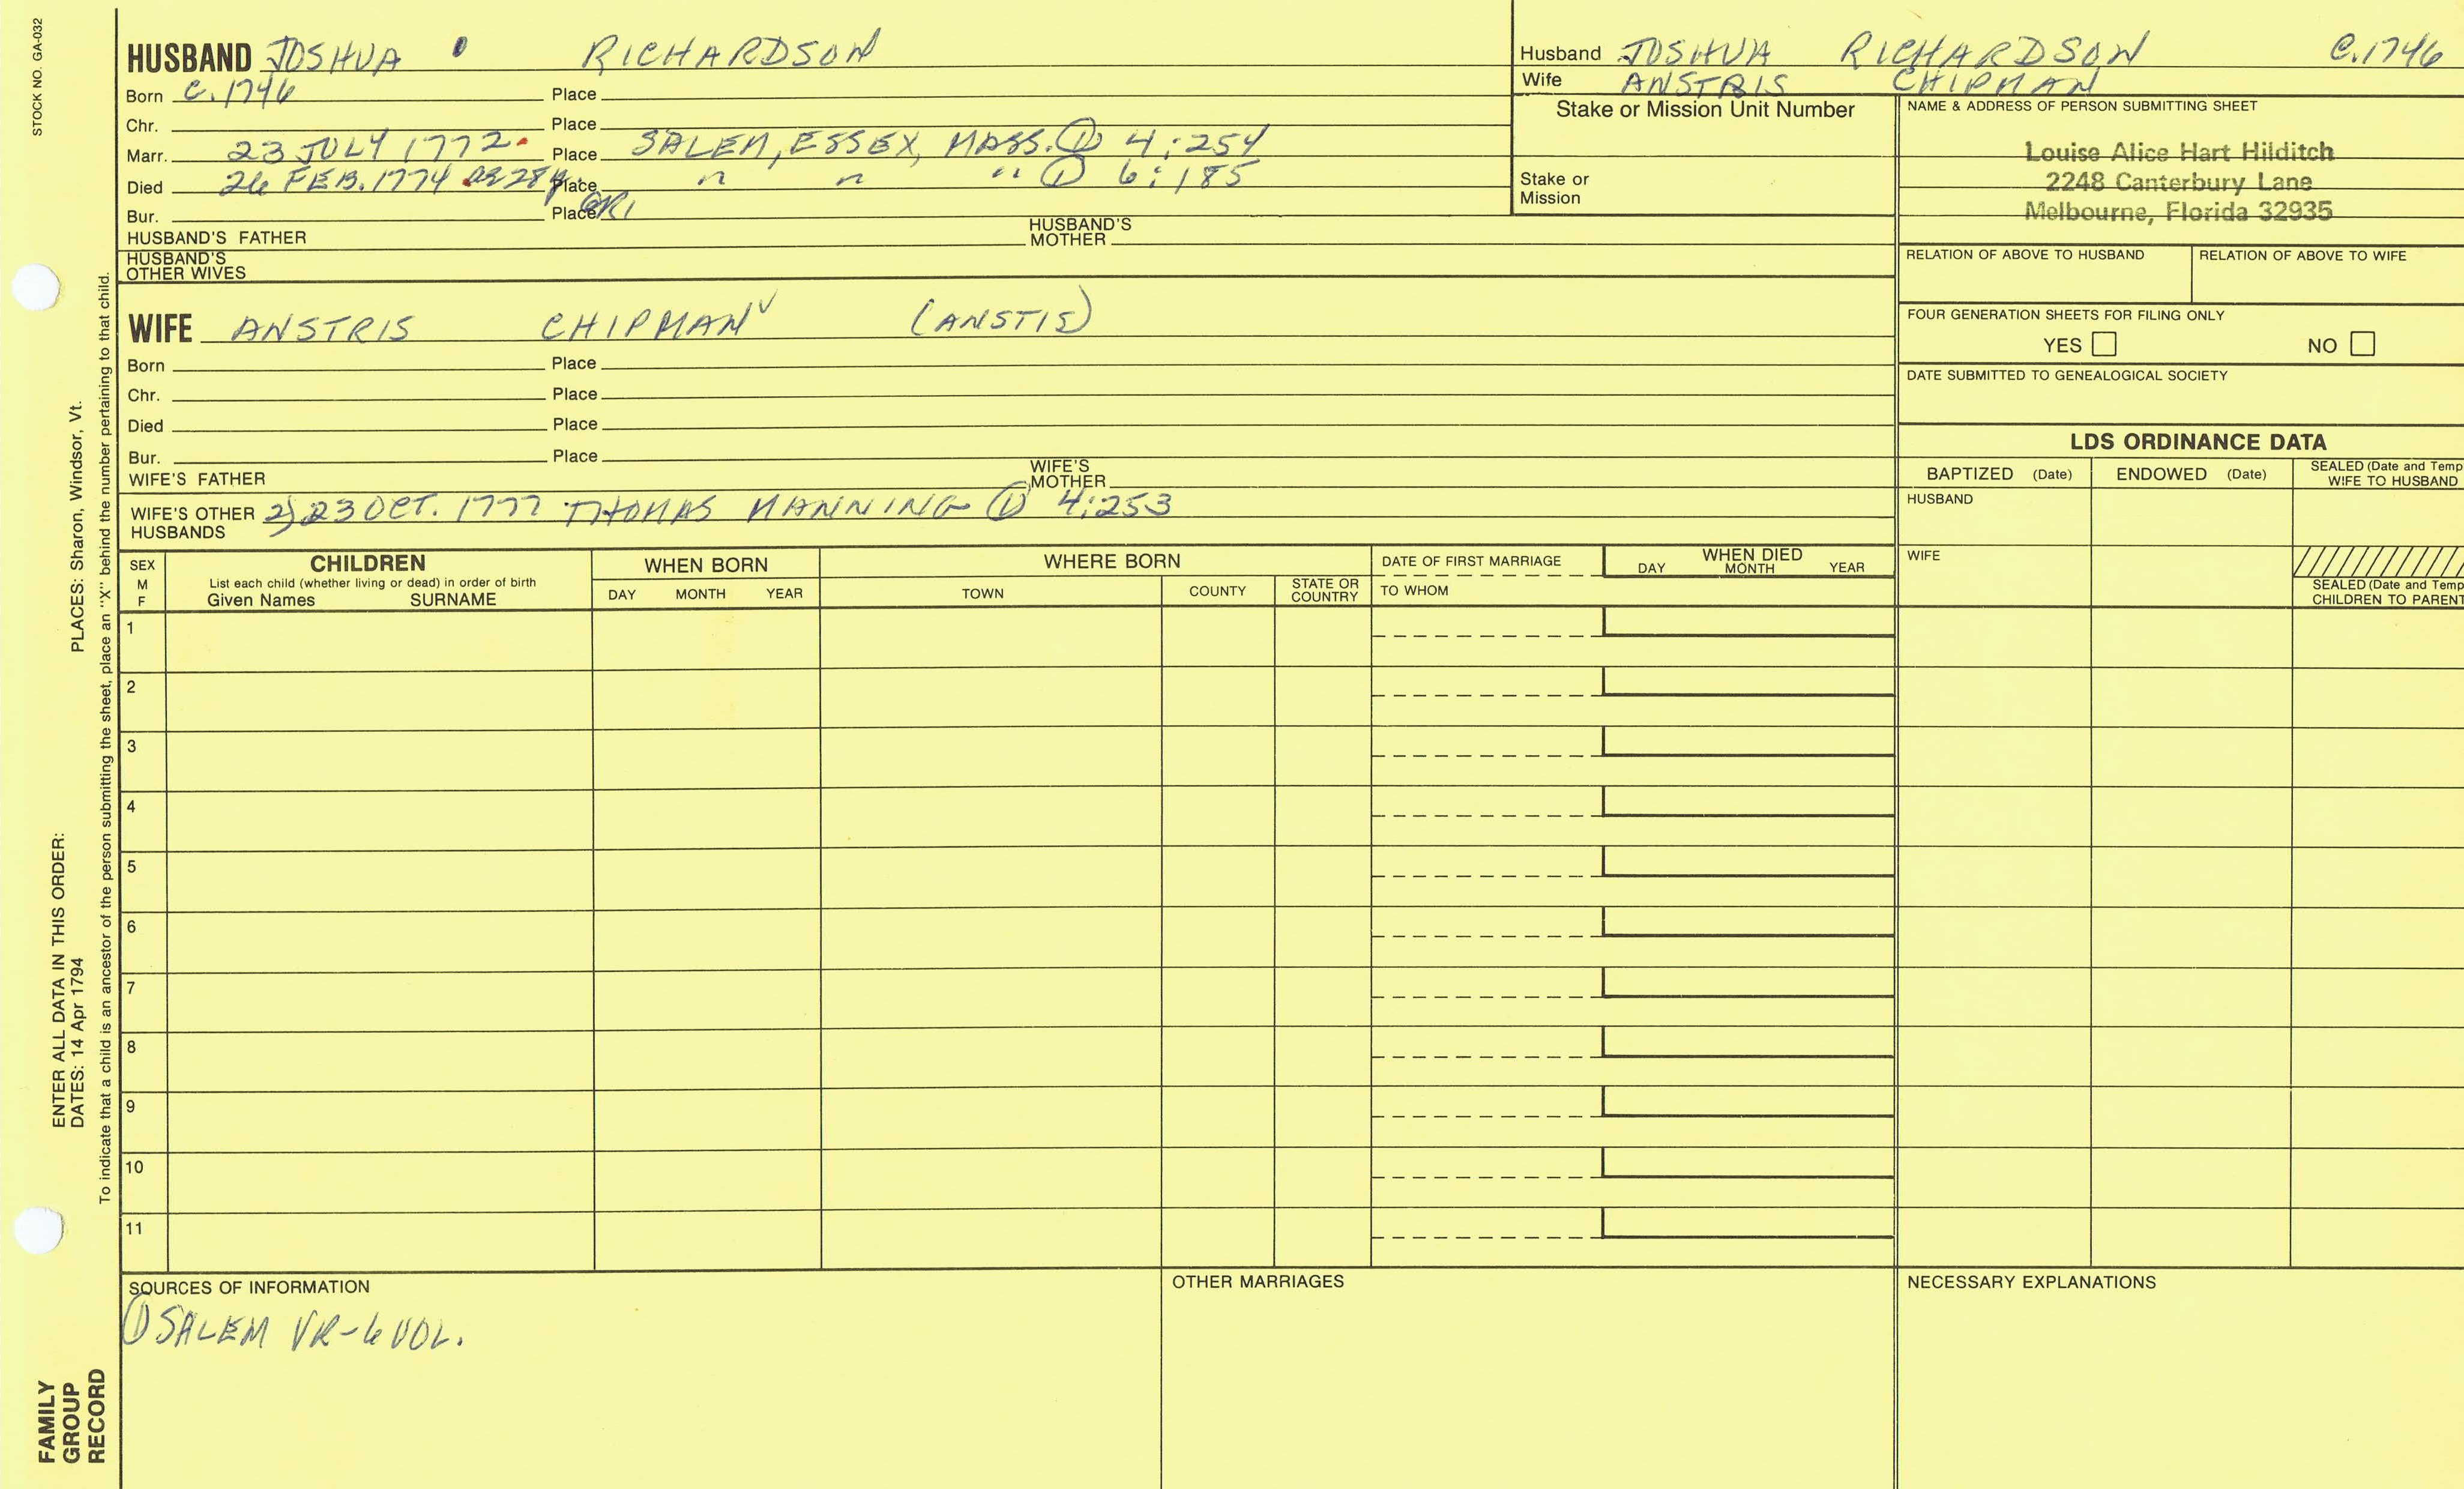 STOCK NO. GA-032
HUSBAND JOSHUA RICHARDSON
Born C. 1746 Place
Chr. Place
Marr. 23 JULY 1772 Place SALEM, ESSEX, MASS. ① 4:254
Died 26 FEB. 1774 Place " " " ① 6:185
Bur. Place GR1
HUSBAND'S FATHER HUSBAND'S MOTHER
HUSBAND'S OTHER WIVES
WIFE ANSTRIS CHIPMAN (ANSTIS)
Born Place
Chr. Place
Died Place
Bur. Place
WIFE'S FATHER WIFE'S MOTHER
WIFE'S OTHER HUSBANDS 2) 23 OCT. 1777 THOMAS MANNING ① 4:253
Husband JOSHUA RICHARDSON C.1746
Wife ANSTRIS CHIPMAN
Stake or Mission Unit Number
Stake or
Mission
NAME & ADDRESS OF PERSON SUBMITTING SHEET
Louise Alice Hart Hilditch
2248 Canterbury Lane
Melbourne, Florida 32935
RELATION OF ABOVE TO HUSBAND RELATION OF ABOVE TO WIFE
FOUR GENERATION SHEETS FOR FILING ONLY
YES NO
DATE SUBMITTED TO GENEALOGICAL SOCIETY
LDS ORDINANCE DATA
BAPTIZED (Date) ENDOWED (Date) SEALED (Date and Temp
WIFE TO HUSBAND
HUSBAND
WIFE
SEALED (Date and Temp
CHILDREN TO PARENT
SEX
M
F
CHILDREN
List each child (whether living or dead) in order of birth
Given Names SURNAME
WHEN BORN
DAY MONTH YEAR
WHERE BORN
TOWN COUNTY STATE OR COUNTRY
DATE OF FIRST MARRIAGE
TO WHOM
WHEN DIED
DAY MONTH YEAR
1
2
3
4
5
6
7
8
9
10
11
SOURCES OF INFORMATION
① SALEM VR-6 VOL.
OTHER MARRIAGES
NECESSARY EXPLANATIONS
ENTER ALL DATA IN THIS ORDER:
DATES: 14 Apr 1794 PLACES: Sharon, Windsor, Vt.
To indicate that a child is an ancestor of the person submitting the sheet, place an "X" behind the number pertaining to that child.
FAMILY
GROUP
RECORD